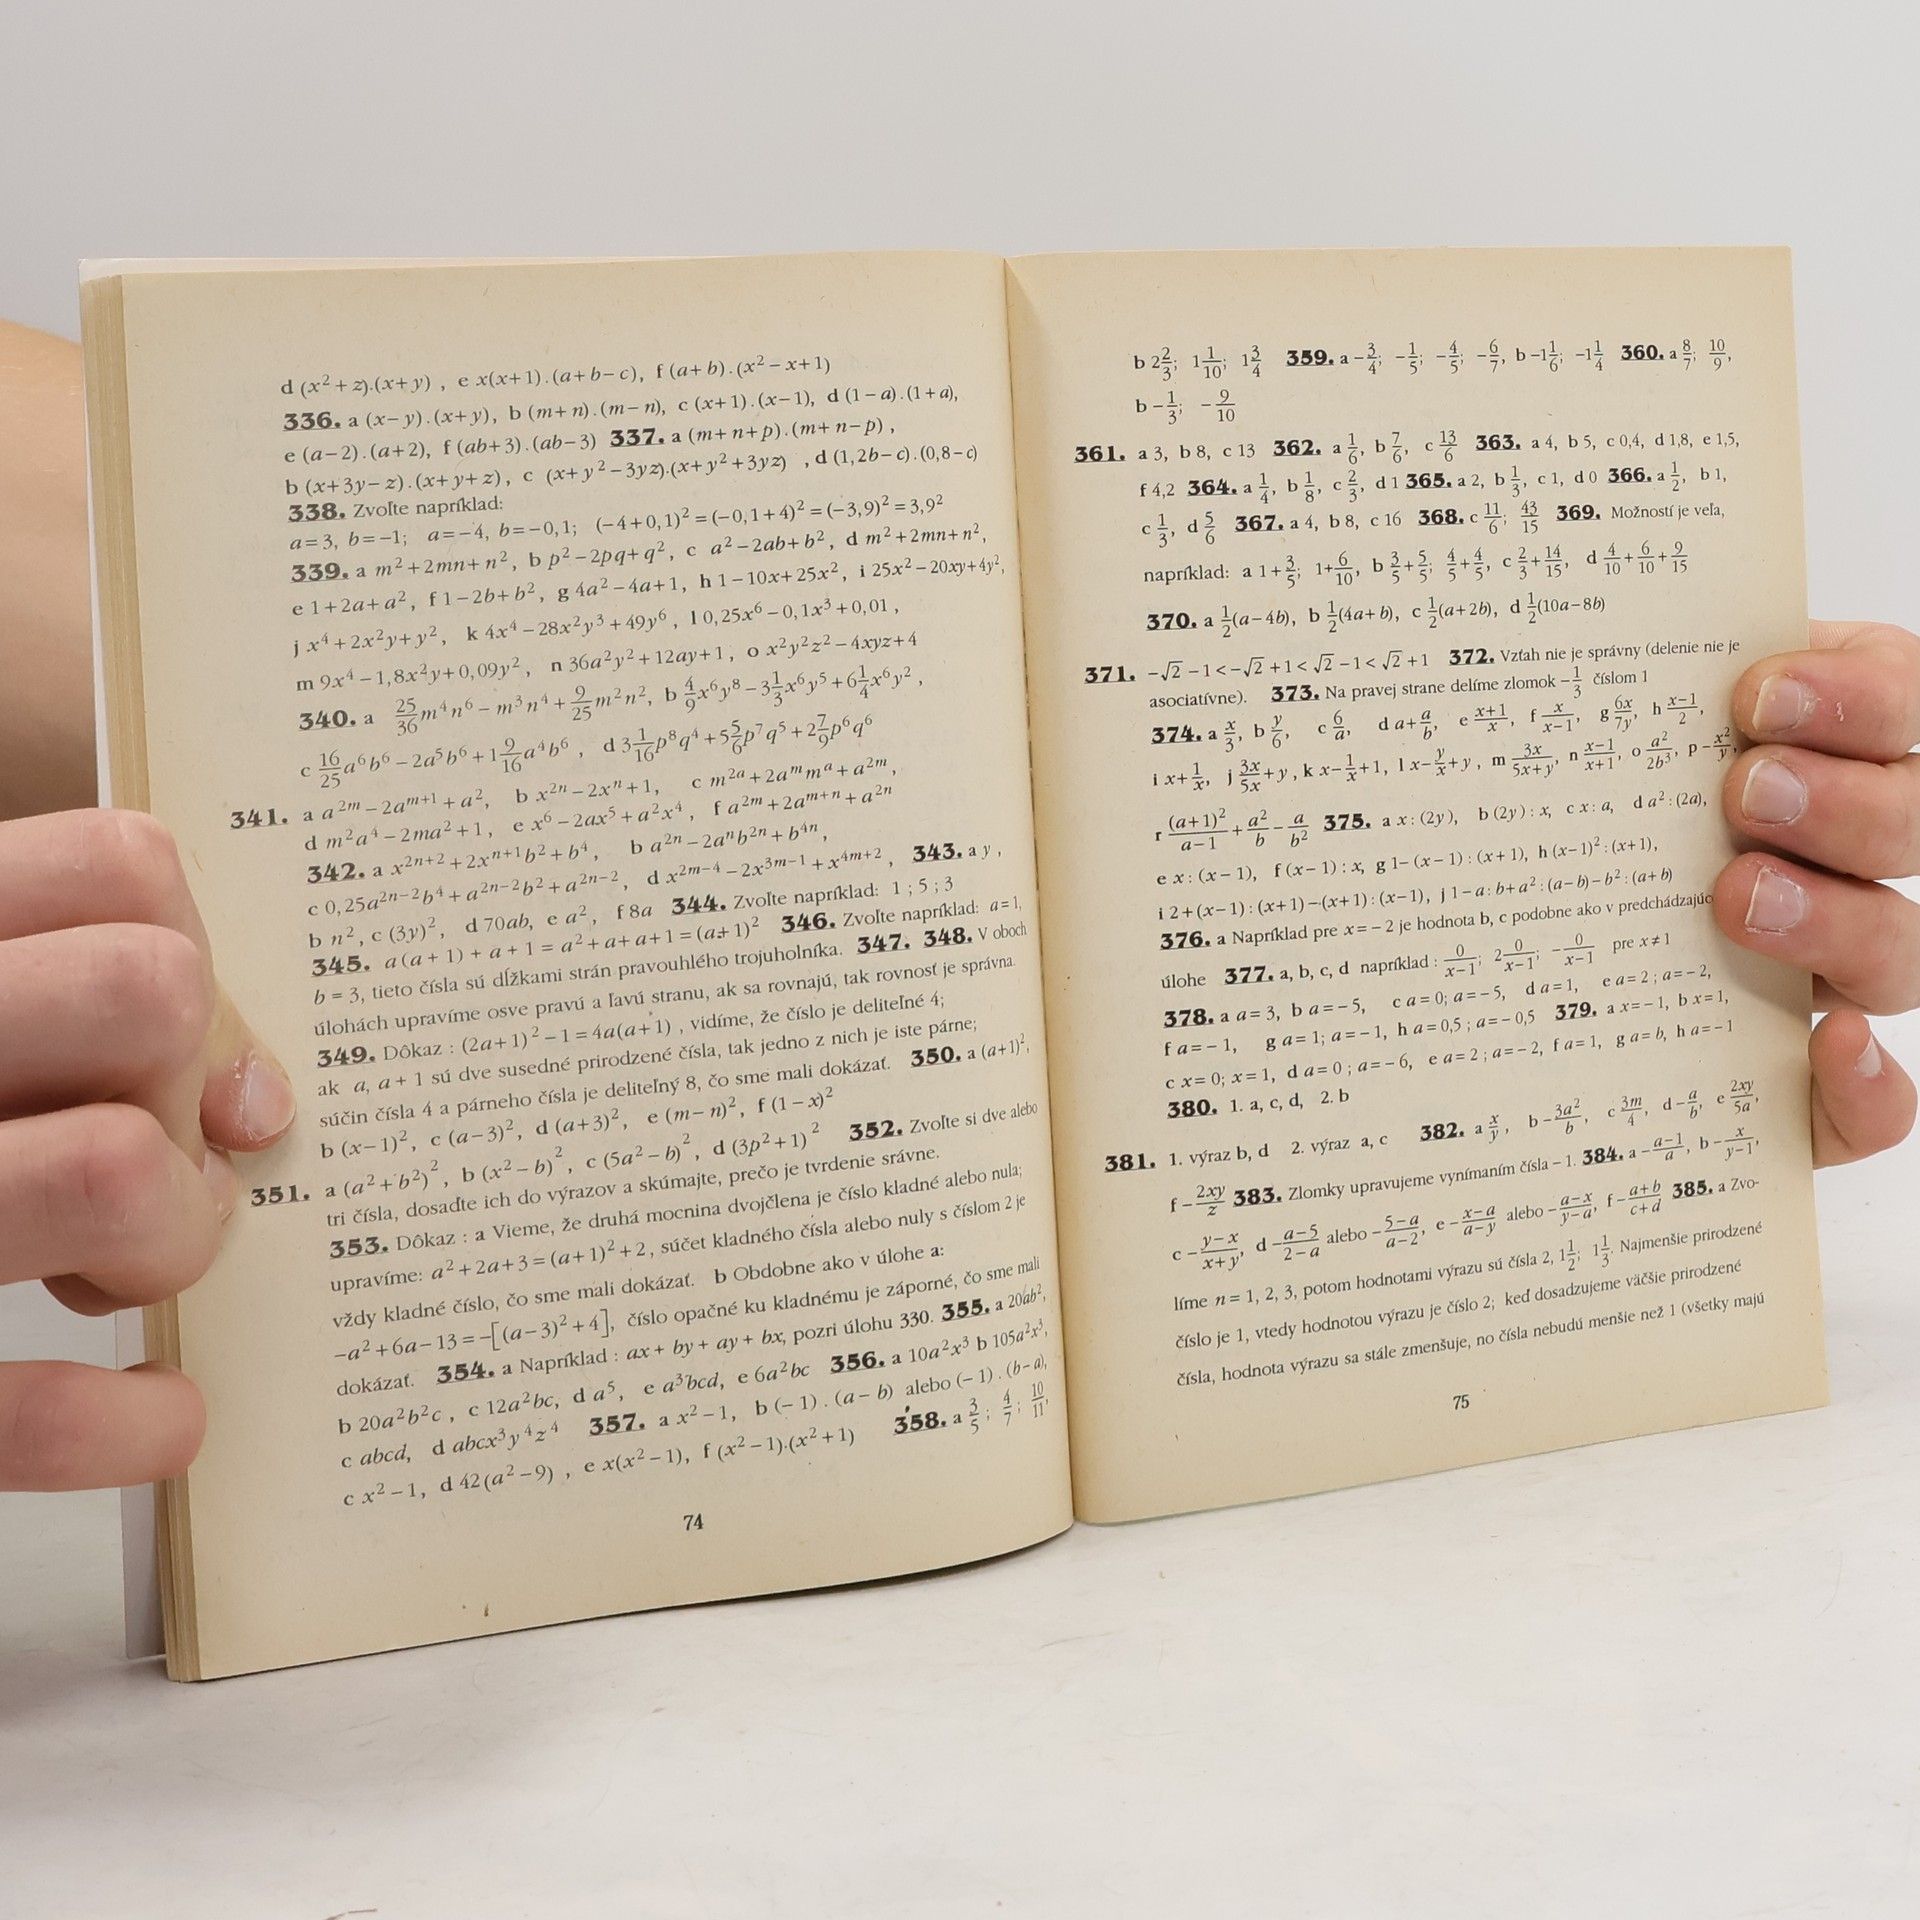 d (x² + z).(x+y) , e x(x+1).(a+b−c), f (a+b).(x²−x+1)
336. a (x−y).(x+y), b (m+n).(m−n), c (x+1).(x−1), d (1−a).(1+a),
e (a−2).(a+2), f (ab+3).(ab−3) 337. a (m+n+p).(m+n−p) ,
b (x+3y−z).(x+y+z), c (x+y²−3yz).(x+y²+3yz) , d (1,2b−c).(0,8−c)
338. Zvoľte napríklad:
a=3, b=−1; a=−4, b=−0,1; (−4+0,1)²=(−0,1+4)²=(−3,9)²=3,9²
339. a m²+2mn+n², b p²−2pq+q², c a²−2ab+b², d m²+2mn+n²,
e 1+2a+a², f 1−2b+b², g 4a²−4a+1, h 1−10x+25x², i 25x²−20xy+4y²,
j x⁴+2x²y+y², k 4x⁴−28x²y³+49y⁶, l 0,25x⁶−0,1x³+0,01 ,
m 9x⁴−1,8x²y+0,09y², n 36a²y²+12ay+1, o x²y²z²−4xyz+4
340. a 25/36 m⁴n⁶−m³n⁴+9/25 m²n², b 4/9 x⁶y⁸−3 1/3 x⁶y⁵+6 1/4 x⁶y²,
c 16/25 a⁶b⁶−2a⁵b⁶+1 9/16 a⁴b⁶ , d 3 1/16 p⁸q⁴+5 5/6 p⁷q⁵+2 7/9 p⁶q⁶
341. a a²ᵐ−2aᵐ⁺¹+a², b x²ⁿ−2xⁿ+1, c m²ᵃ+2aᵐmᵃ+a²ᵐ,
d m²a⁴−2ma²+1, e x⁶−2ax⁵+a²x⁴, f a²ᵐ+2aᵐ⁺ⁿ+a²ⁿ
342. a x²ⁿ⁺²+2xⁿ⁺¹b²+b⁴, b a²ⁿ−2aⁿb²ⁿ+b⁴ⁿ,
c 0,25a²ⁿ⁻²b⁴+a²ⁿ⁻²b²+a²ⁿ⁻², d x²ᵐ⁻⁴−2x³ᵐ⁻¹+x⁴ᵐ⁺², 343. a y ,
b n², c (3y)², d 70ab, e a², f 8a 344. Zvoľte napríklad: 1 ; 5 ; 3
345. a(a+1)+a+1=a²+a+a+1=(a+1)² 346. Zvoľte napríklad: a=1,
b = 3, tieto čísla sú dĺžkami strán pravouhlého trojuholníka. 347. 348. V oboch
úlohách upravíme osve pravú a ľavú stranu, ak sa rovnajú, tak rovnosť je správna.
349. Dôkaz : (2a+1)²−1=4a(a+1) , vidíme, že číslo je deliteľné 4;
ak a, a + 1 sú dve susedné prirodzené čísla, tak jedno z nich je iste párne;
súčin čísla 4 a párneho čísla je deliteľný 8, čo sme mali dokázať. 350. a (a+1)²,
b (x−1)², c (a−3)², d (a+3)², e (m−n)², f (1−x)²
351. a (a²+b²)², b (x²−b)², c (5a²−b)², d (3p²+1)² 352. Zvoľte si dve alebo
tri čísla, dosaďte ich do výrazov a skúmajte, prečo je tvrdenie srávne.
353. Dôkaz : a Vieme, že druhá mocnina dvojčlena je číslo kladné alebo nula;
upravíme: a²+2a+3=(a+1)²+2, súčet kladného čísla alebo nuly s číslom 2 je
vždy kladné číslo, čo sme mali dokázať. b Obdobne ako v úlohe a:
−a²+6a−13=−[(a−3)²+4], číslo opačné ku kladnému je záporné, čo sme mali
dokázať. 354. a Napríklad : ax + by + ay + bx, pozri úlohu 330. 355. a 20ab²,
b 20a²b²c , c 12a²bc, d a⁵, e a³bcd, e 6a²bc 356. a 10a²x³ b 105a²x³,
c abcd, d abcx³y⁴z⁴ 357. a x²−1, b (−1) . (a−b) alebo (−1) . (b−a),
c x²−1, d 42(a²−9) , e x(x²−1), f (x²−1).(x²+1) 358. a 3/5 ; 4/7 ; 10/11,
74
b 2 2/3; 1 1/10; 1 3/4 359. a −3/4; −1/5; −4/5; −6/7, b −1 1/6; −1 1/4 360. a 8/7; 10/9,
b −1/3; −9/10
361. a 3, b 8, c 13 362. a 1/6, b 7/6, c 13/6 363. a 4, b 5, c 0,4, d 1,8, e 1,5,
f 4,2 364. a 1/4, b 1/8, c 2/3, d 1 365. a 2, b 1/3, c 1, d 0 366. a 1/2, b 1,
c 1/3, d 5/6 367. a 4, b 8, c 16 368. c 11/6; 43/15 369. Možností je veľa,
napríklad: a 1+3/5; 1+6/10, b 3/5+5/5; 4/5+4/5, c 2/3+14/15, d 4/10+6/10+9/15
370. a 1/2(a−4b), b 1/2(4a+b), c 1/2(a+2b), d 1/2(10a−8b)
371. −√2 −1<−√2 +1<√2 −1<√2 +1 372. Vzťah nie je správny (delenie nie je
asociatívne). 373. Na pravej strane delíme zlomok −1/3 číslom 1
374. a x/3, b y/6, c 6/a, d a+a/b, e x+1/x, f x/x−1, g 6x/7y, h x−1/2,
i x+1/x, j 3x/5x+y , k x−1/x+1, l x−y/x+y , m 3x/5x+y, n x−1/x+1, o a²/2b³, p −x²/y,
r (a+1)²/a−1+a²/b−a/b² 375. a x : (2y), b (2y) : x, c x : a, d a² : (2a),
e x : (x−1), f (x−1) : x, g 1−(x−1) : (x+1), h (x−1)² : (x+1),
i 2+(x−1) : (x+1)−(x+1) : (x−1), j 1−a : b+a² : (a−b)−b² : (a+b)
376. a Napríklad pre x=−2 je hodnota b, c podobne ako v predchádzajúc
úlohe 377. a, b, c, d napríklad : 0/x−1; 2 0/x−1; −0/x−1 pre x≠1
378. a a=3, b a=−5, c a=0; a=−5, d a=1, e a=2 ; a=−2,
f a=−1, g a=1; a=−1, h a=0,5 ; a=−0,5 379. a x=−1, b x=1,
c x=0; x=1, d a=0 ; a=−6, e a=2 ; a=−2, f a=1, g a=b, h a=−1
380. 1. a, c, d, 2. b
381. 1. výraz b, d 2. výraz a, c 382. a x/y, b −3a²/b, c 3m/4, d −a/b, e 2xy/5a,
f −2xy/z 383. Zlomky upravujeme vynímaním čísla −1. 384. a −a−1/a, b −x/y−1,
c −y−x/x+y, d −a−5/2−a alebo −5−a/a−2, e −x−a/a−y alebo −a−x/y−a, f −a+b/c+d 385. a Zvo-
líme n = 1, 2, 3, potom hodnotami výrazu sú čísla 2, 1 1/2; 1 1/3. Najmenšie prirodzené
číslo je 1, vtedy hodnotou výrazu je číslo 2; keď dosadzujeme väčšie prirodzené
čísla, hodnota výrazu sa stále zmenšuje, no čísla nebudú menšie než 1 (všetky majú
75